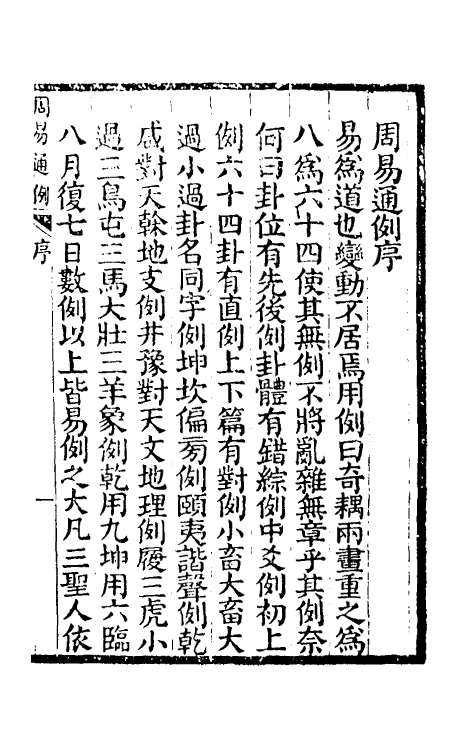 周易通例序
易爲道也變動不居焉用例曰奇耦兩畫重之爲
八爲六十四使其無例不將亂雜無章乎其例奈
何曰卦位有先後例卦體有錯綜例中爻例初上
例六十四卦有直例上下篇有對例小畜大畜大
過小過卦名同字例坤坎偏旁例頤夷諧聲例乾
咸對天榦地支例井豫對天文地理例履三虎小
過三鳥屯三馬大壯三羊象例乾用九坤用六臨
八月復七日數例以上皆易例之大凡三聖人依
周易通例 序 一